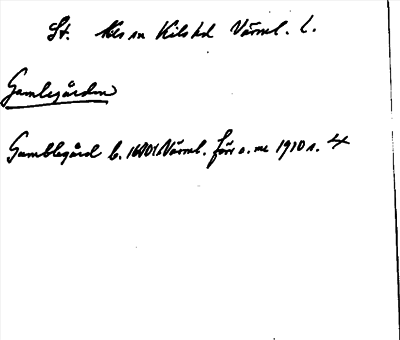 St. Kils sn Kils hd Värml. l.
Gamlegården
Gamblegård b. 1640 Värml. förr o. nu 1910 s. 4